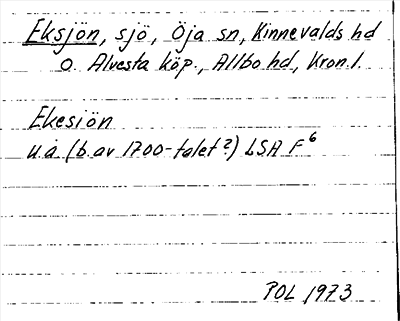 Eksjön, sjö, Öja sn, Kinnevalds hd
o. Alvesta köp., Allbo hd, Kron.l.
Ekesiön
u.å. (b. av 1700-talet?) LSA F6
POL 1973